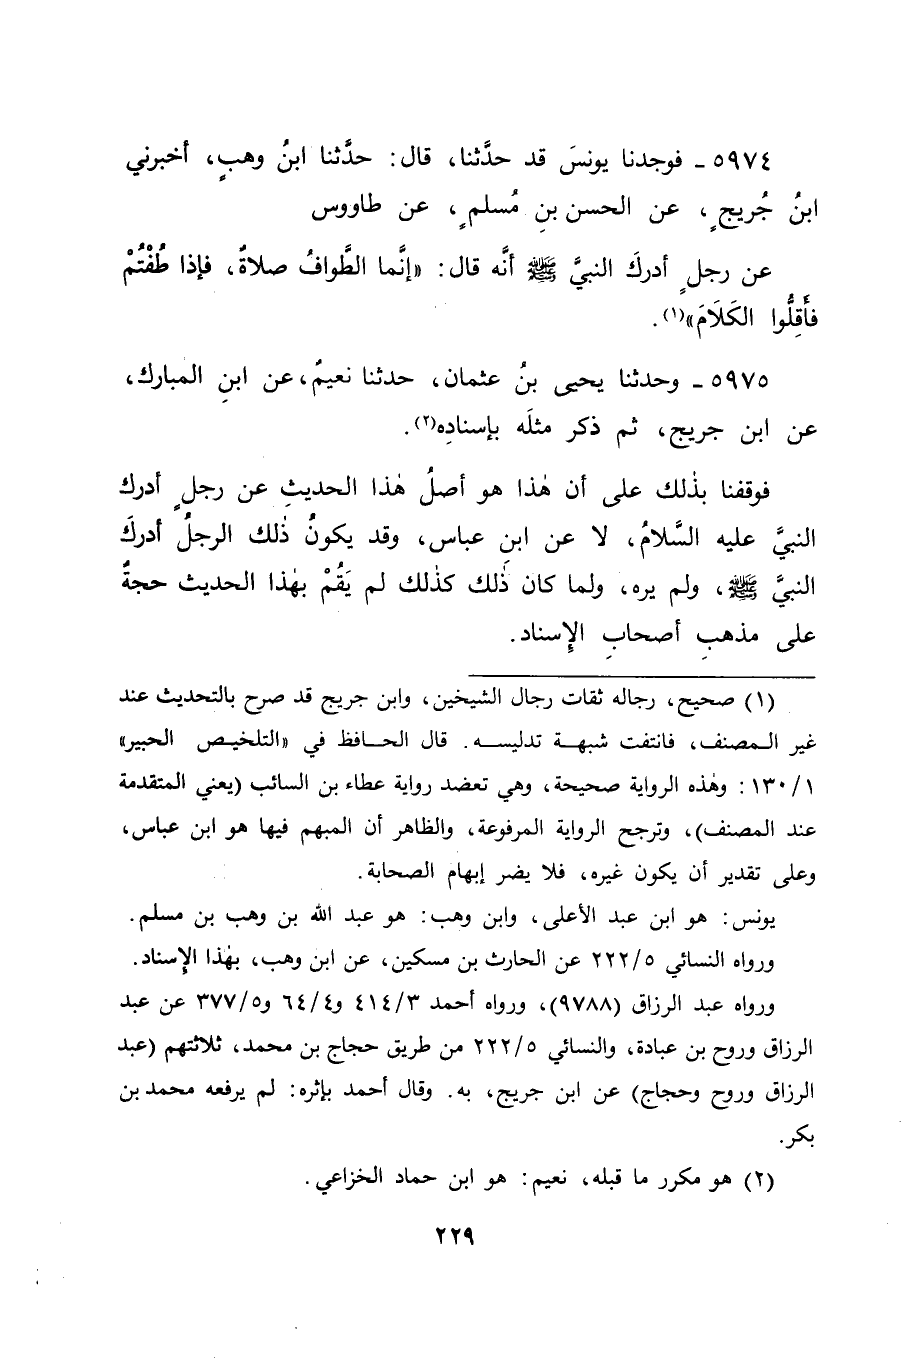 ٥٩٧٤ ـ فوجدنا يونسَ قد حدَّثنا، قال: حدَّثنا ابنُ وهبٍ، أخبرني
ابنُ جُريجٍ، عن الحسن بنِ مُسلمٍ، عن طاووس
عن رجلٍ أدركَ النبيَّ ﷺ أنَّه قال: «إنَّما الطَّوافُ صلاةٌ، فإذا طُفْتُمْ
فأَقِلُّوا الكَلَامَ»(١).
٥٩٧٥ ـ وحدثنا يحيى بنُ عثمان، حدثنا نعيمٌ، عن ابنِ المبارك،
عن ابن جريج، ثم ذكر مثلَه بإسنادِه(٢).
فوقفنا بذٰلك على أن هٰذا هو أصلُ هٰذا الحديثِ عن رجلٍ أدرك
النبيَّ عليه السَّلامُ، لا عن ابنِ عباس، وقد يكونُ ذٰلك الرجلُ أدركَ
النبيَّ ﷺ، ولم يره، ولما كان ذٰلك كذٰلك لم يَقُمْ بهٰذا الحديث حجةٌ
على مذهبِ أصحابِ الإِسناد.
(١) صحيح، رجاله ثقات رجال الشيخين، وابن جريج قد صرح بالتحديث عند
غير المصنف، فانتفت شبهة تدليسه. قال الحافظ في «التلخيص الحبير»
١/ ١٣٠: وهٰذه الرواية صحيحة، وهي تعضد رواية عطاء بن السائب (يعني المتقدمة
عند المصنف)، وترجح الرواية المرفوعة، والظاهر أن المبهم فيها هو ابن عباس،
وعلى تقدير أن يكون غيره، فلا يضر إبهام الصحابة.
يونس: هو ابن عبد الأعلى، وابن وهب: هو عبد الله بن وهب بن مسلم.
ورواه النسائي ٥/ ٢٢٢ عن الحارث بن مسكين، عن ابن وهب، بهٰذا الإِسناد.
ورواه عبد الرزاق (٩٧٨٨)، ورواه أحمد ٣/ ٤١٤ و٤/ ٦٤ و٥/ ٣٧٧ عن عبد
الرزاق وروح بن عبادة، والنسائي ٥/ ٢٢٢ من طريق حجاج بن محمد، ثلاثتهم (عبد
الرزاق وروح وحجاج) عن ابن جريج، به. وقال أحمد بإثره: لم يرفعه محمد بن
بكر.
(٢) هو مكرر ما قبله، نعيم: هو ابن حماد الخزاعي.
٢٢٩